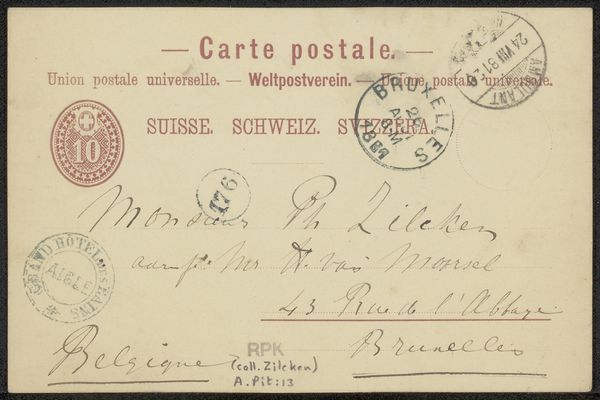 — Carte postale. —
Union postale universelle. — Weltpostverein. — Unione postale universale.
SUISSE. SCHWEIZ. SVIZZERA.
10
AMBULANT
24 VIII 91
BRUXELLES
176
GRAND HÔTEL DES BAINS
AIGLE
Monsieur Ph Zilcken
Mr H. van Moorsel
43 Rue de l'Abbaye
Bruxelles
Belgique
RPK
(coll. Zilcken)
A. Pit: 13